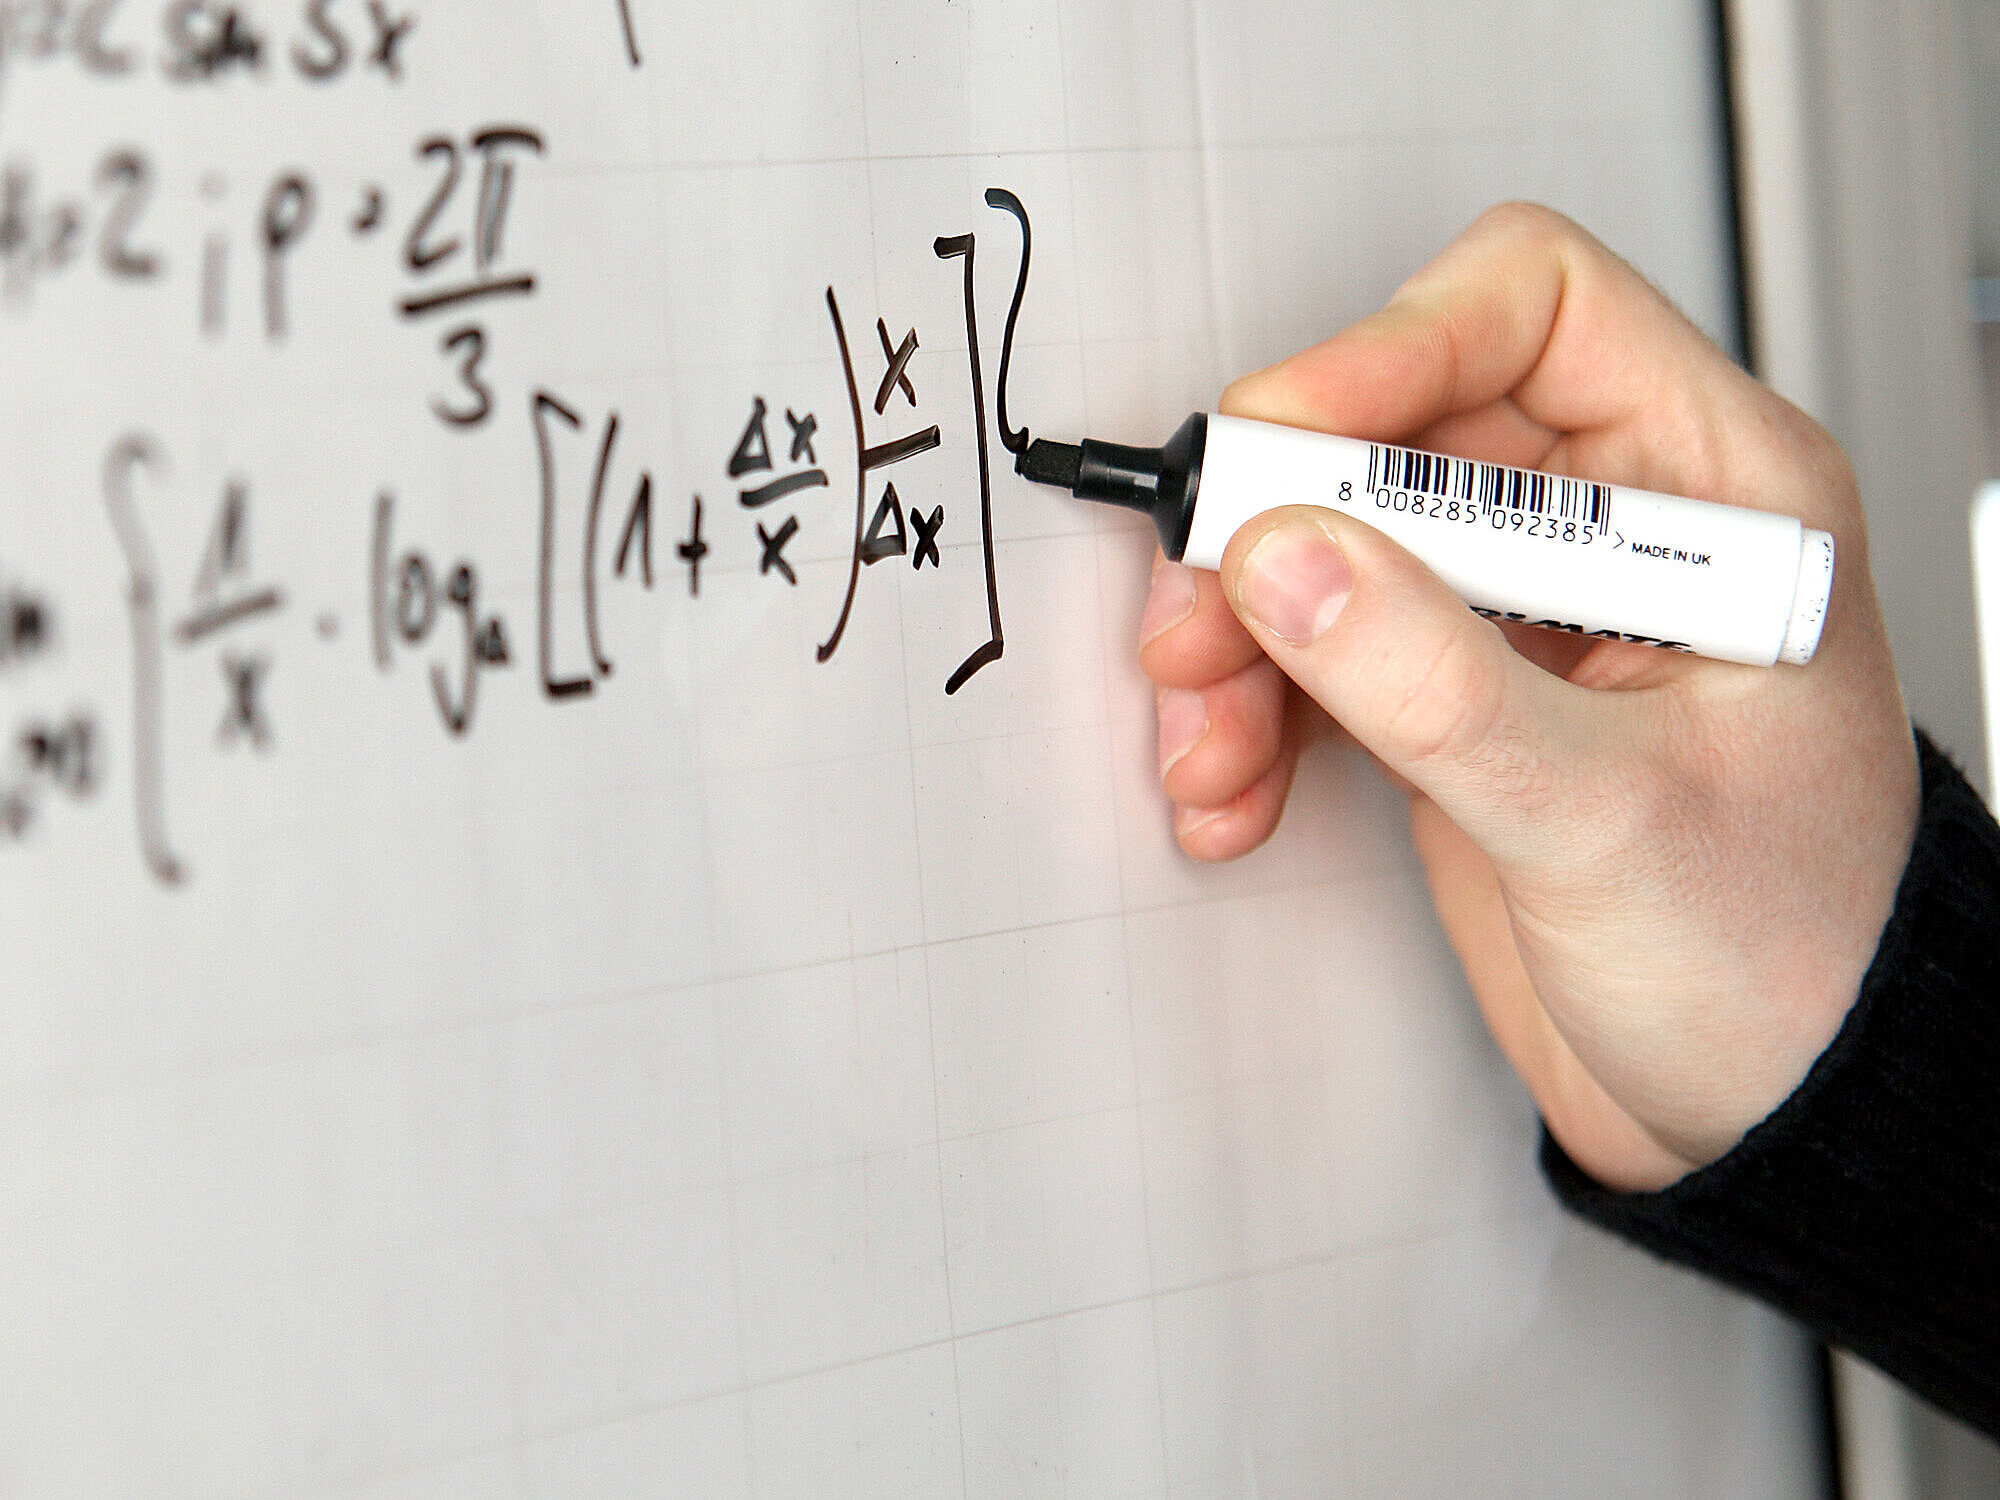 sin 5x
2 ; p = 2π/3
{ 1/x · log_a [(1 + Δx/x) x/Δx ]
8 008285 092385 > MADE IN UK